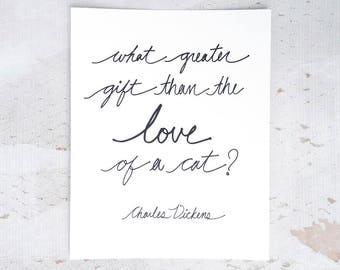 what greater
gift than the
love
of a cat?
Charles Dickens